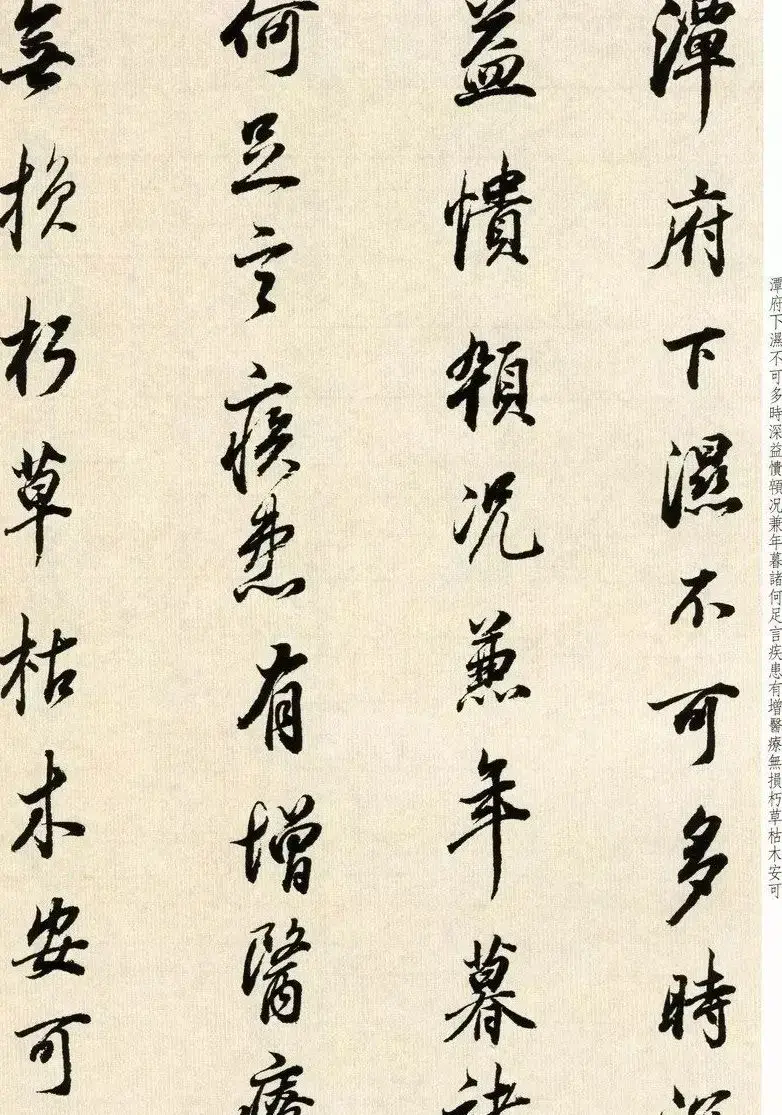 潭府下濕不可多時深
益憒㑯況兼年暮諸
何足言疾患有增醫療
無損朽草枯木安可
潭府下濕不可多時深益憒㑯况兼年暮諸何足言疾患有增醫療無損朽草枯木安可